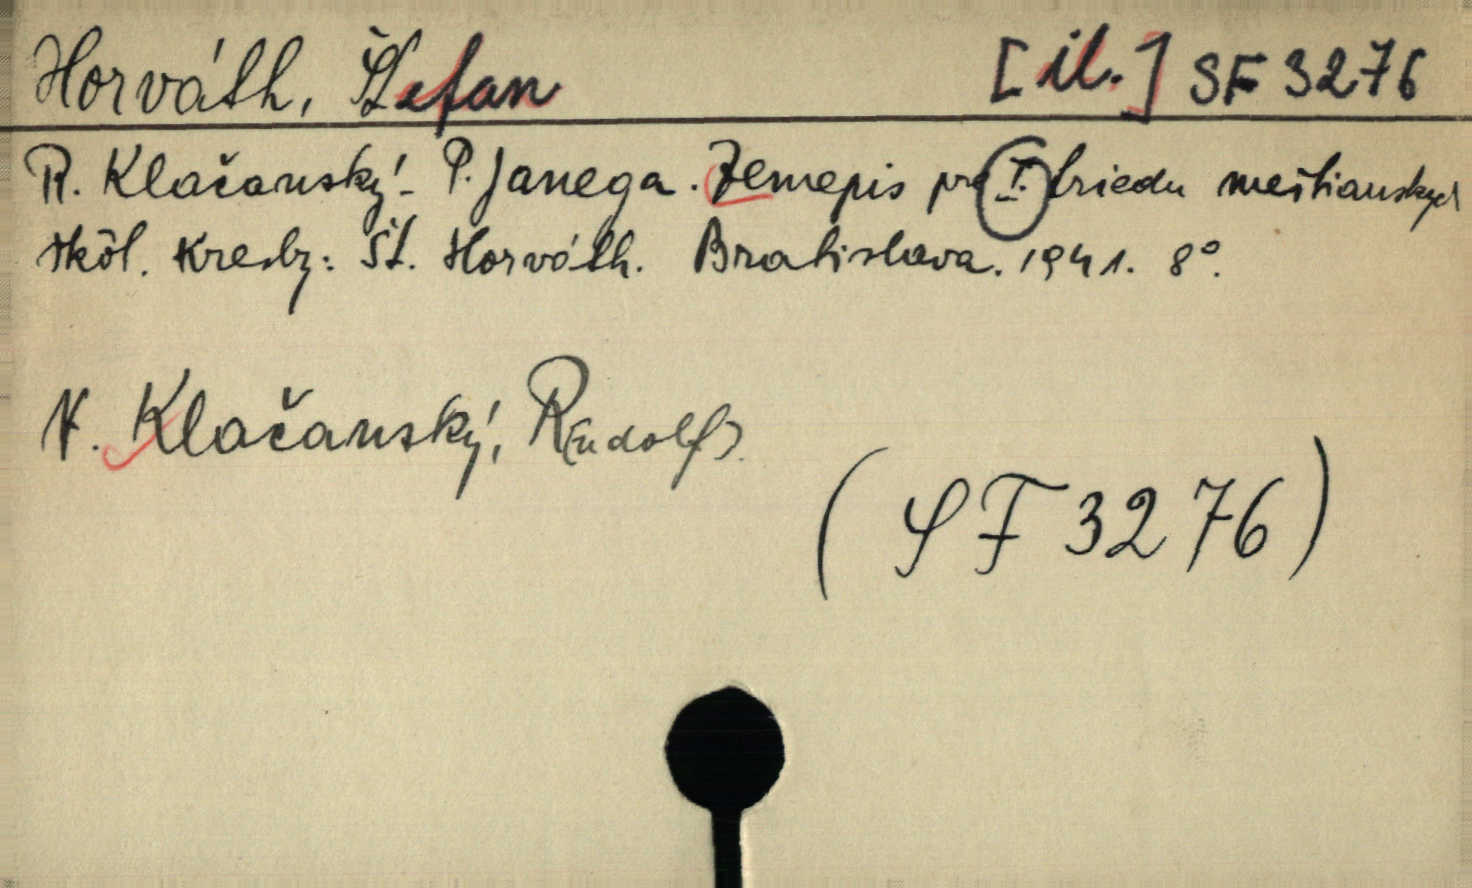 Horváth, Štefan [il.] SF 3276
R. Klačanský - P. Janega. Zemepis pre I. triedu meštianskych
škôl. Kresby: Št. Horváth. Bratislava. 1941. 8°.
V. Klačanský, R(udolf).
(SF 3276)